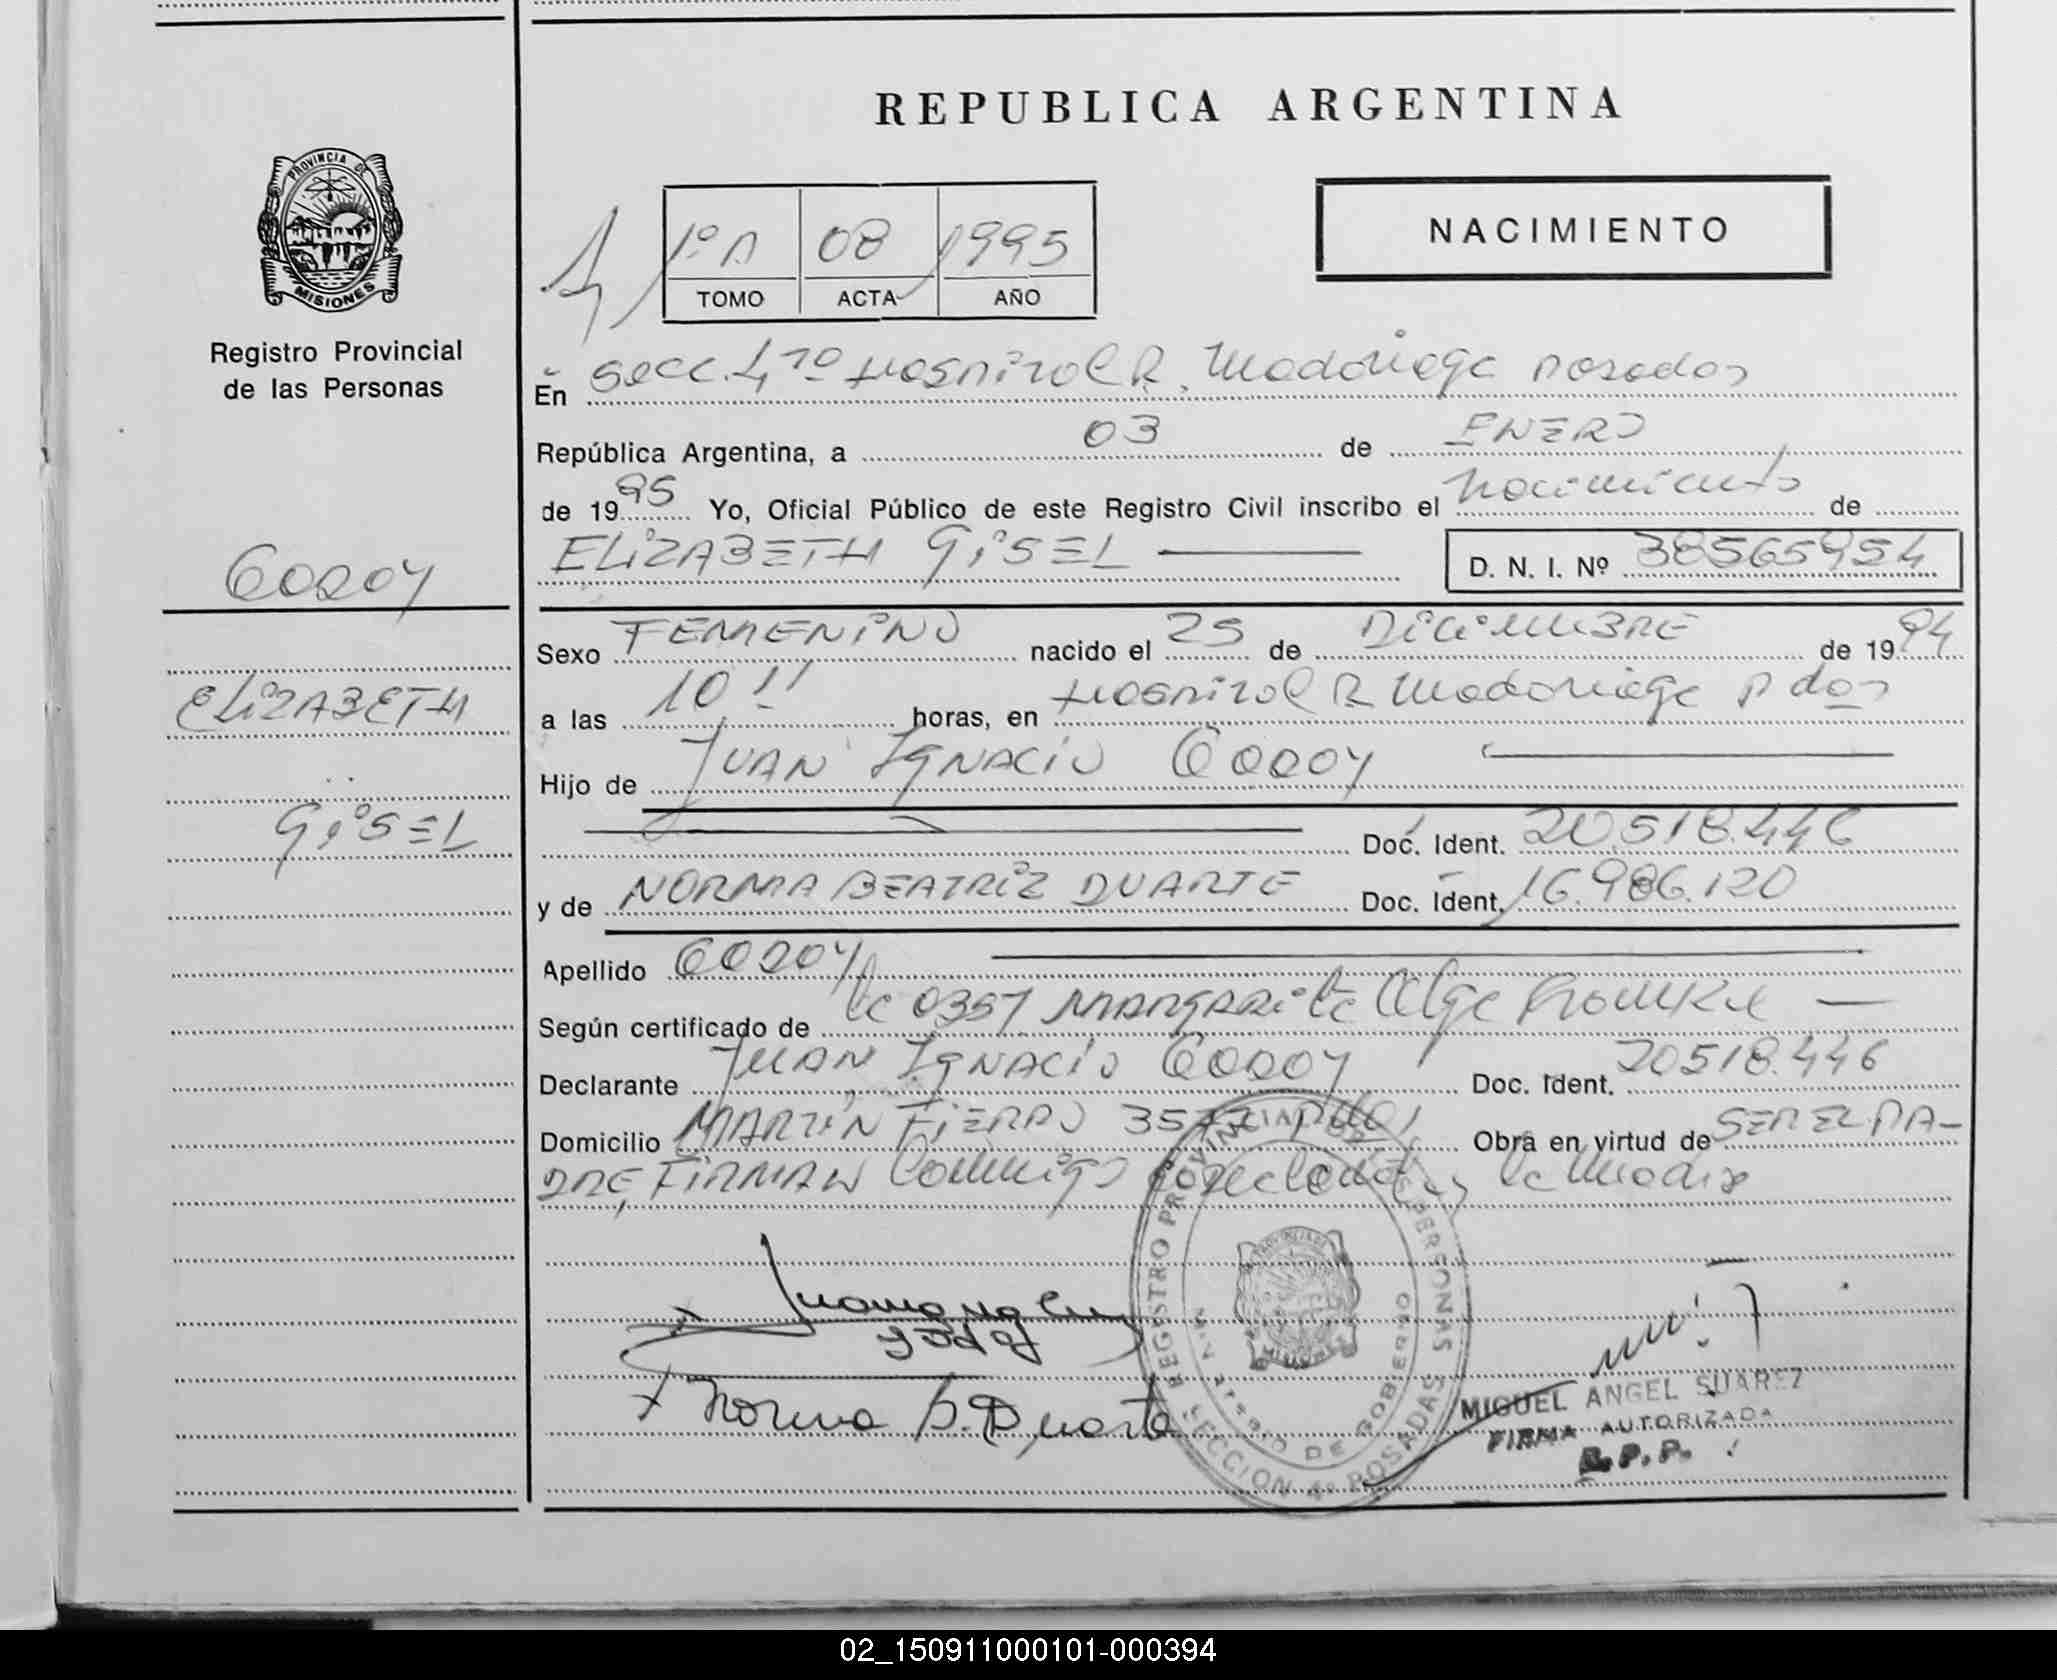 REPUBLICA ARGENTINA
PROVINCIA DE
MISIONES
Registro Provincial
de las Personas
NACIMIENTO
1º A 08 1995
TOMO ACTA AÑO
En Secc. 4ta Hospital R. Madariaga Posadas
República Argentina, a 03 de ENERO
de 1995 Yo, Oficial Público de este Registro Civil inscribo el Nacimiento de
ELIZABETH GISEL D. N. I. Nº 38565954
GODOY
ELIZABETH
GISEL
Sexo FEMENINO nacido el 25 de DICIEMBRE de 1994
a las 10 horas, en Hospital R Madariaga Pdas
Hijo de JUAN IGNACIO GODOY
Doc. Ident. 20.518.446
y de NORMA BEATRIZ DUARTE Doc. Ident. 16.986.120
Apellido GODOY
Según certificado de la 0357 MARGARITA Olga
Declarante JUAN IGNACIO GODOY Doc. Ident. 20518.446
Domicilio MARTIN FIERRO Obra en virtud de SER EL PA-
DRE, FIRMAN Conmigo la Madre
REGISTRO PROVINCIAL DE LAS PERSONAS
MINISTERIO DE GOBIERNO
SECCION 4º POSADAS
Godoy
Norma B. Duarte
MIGUEL ANGEL SUAREZ
FIRMA AUTORIZADA
R.P.P.
02_150911000101-000394